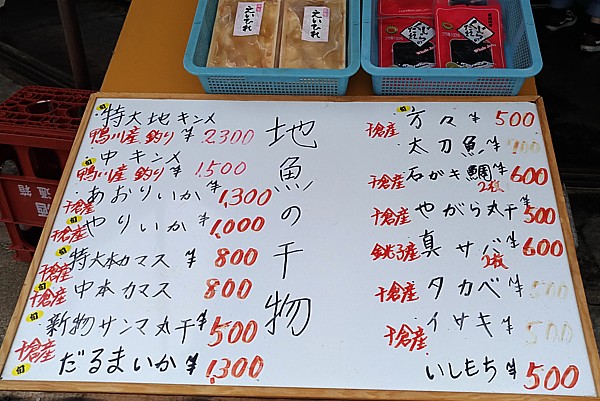 えいひれ
えいひれ
地魚の干物
旬
・特大地キンメ
鴨川産 釣り ¥2300
旬
・中キンメ
鴨川産 釣り ¥1,500
旬
・あおりいか ¥1,300
千倉産
旬
・やりいか ¥1,000
千倉産
旬
・特大本カマス ¥800
千倉産
旬
・中本カマス 800
千倉産
旬
・新物サンマ丸干 ¥500
千倉産
旬
・だるまいか ¥1,300
旬
・方々 ¥500
千倉産
太刀魚 ¥
石がき鯛 ¥600
千倉産 2枚
やがら丸干 ¥500
千倉産
真サバ ¥600
銚子産 2枚
タカベ ¥500
千倉産
イサキ ¥500
千倉産
いしもち ¥500